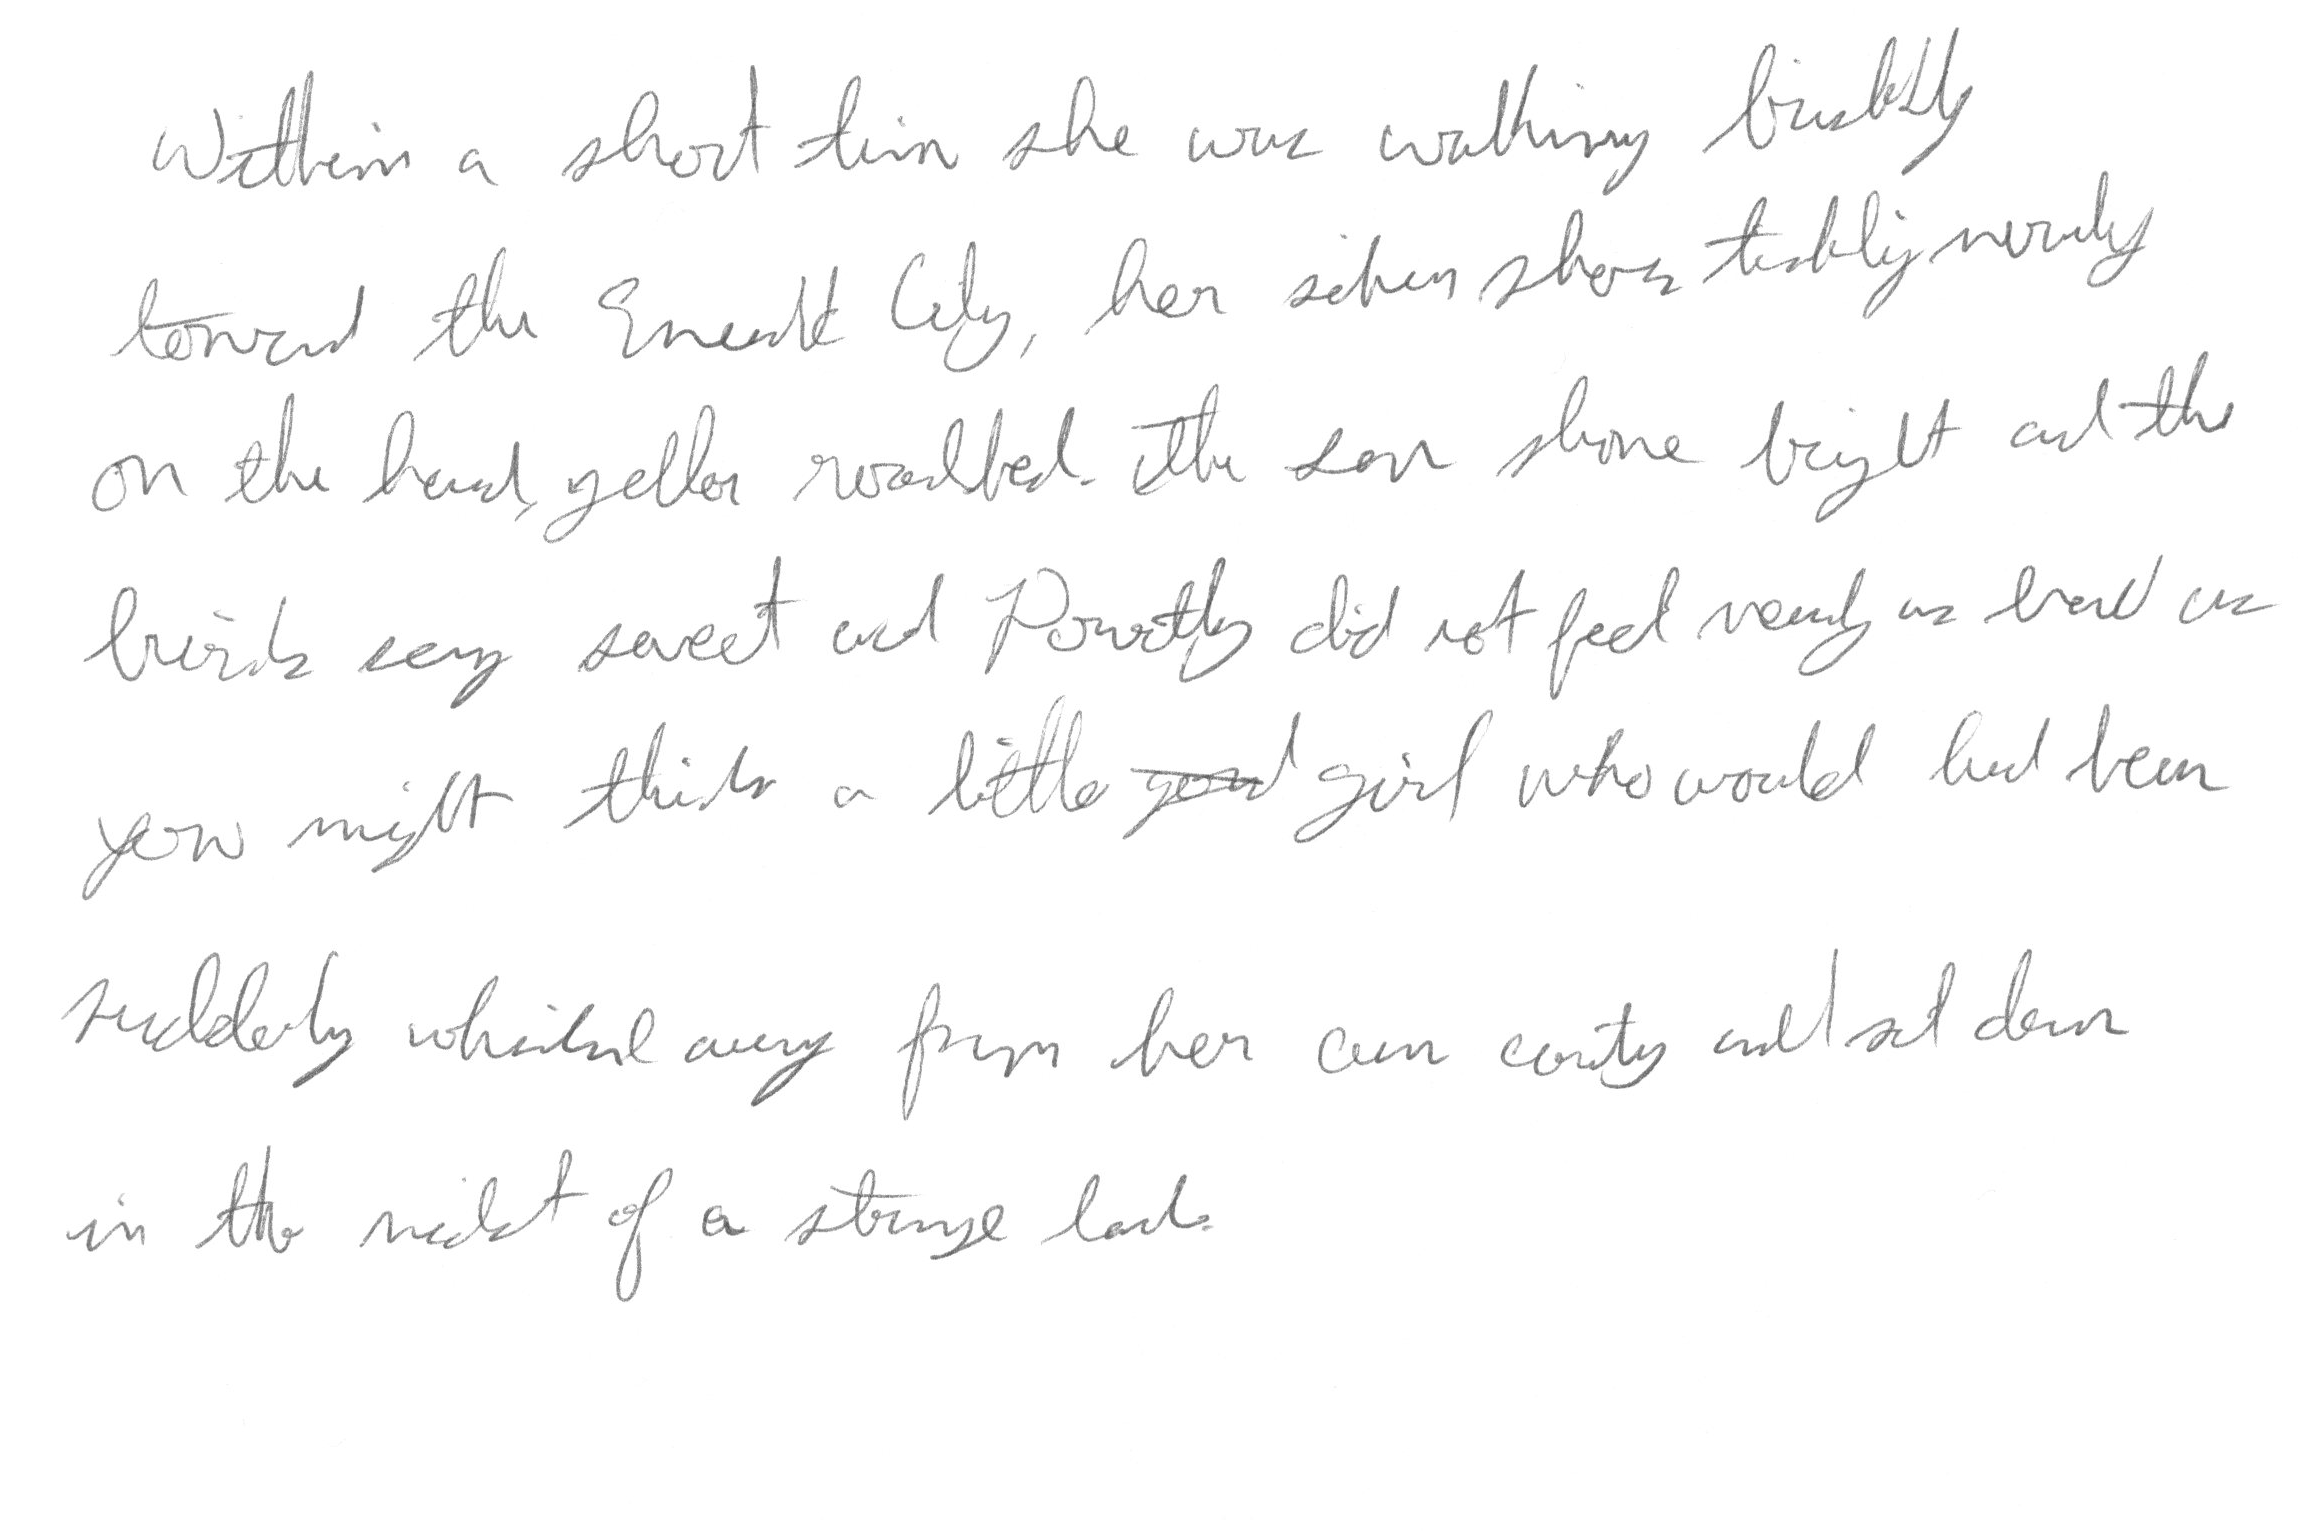 Within a short time she was walking briskly
toward the Emerald City, her silver shoes tinkling merrily
on the hard, yellow roadbed. The sun shone bright and the
birds sang sweet and Dorothy did not feel nearly as bad as
you might think a little good girl who would had been
suddenly whisked away from her own country and set down
in the midst of a strange land.